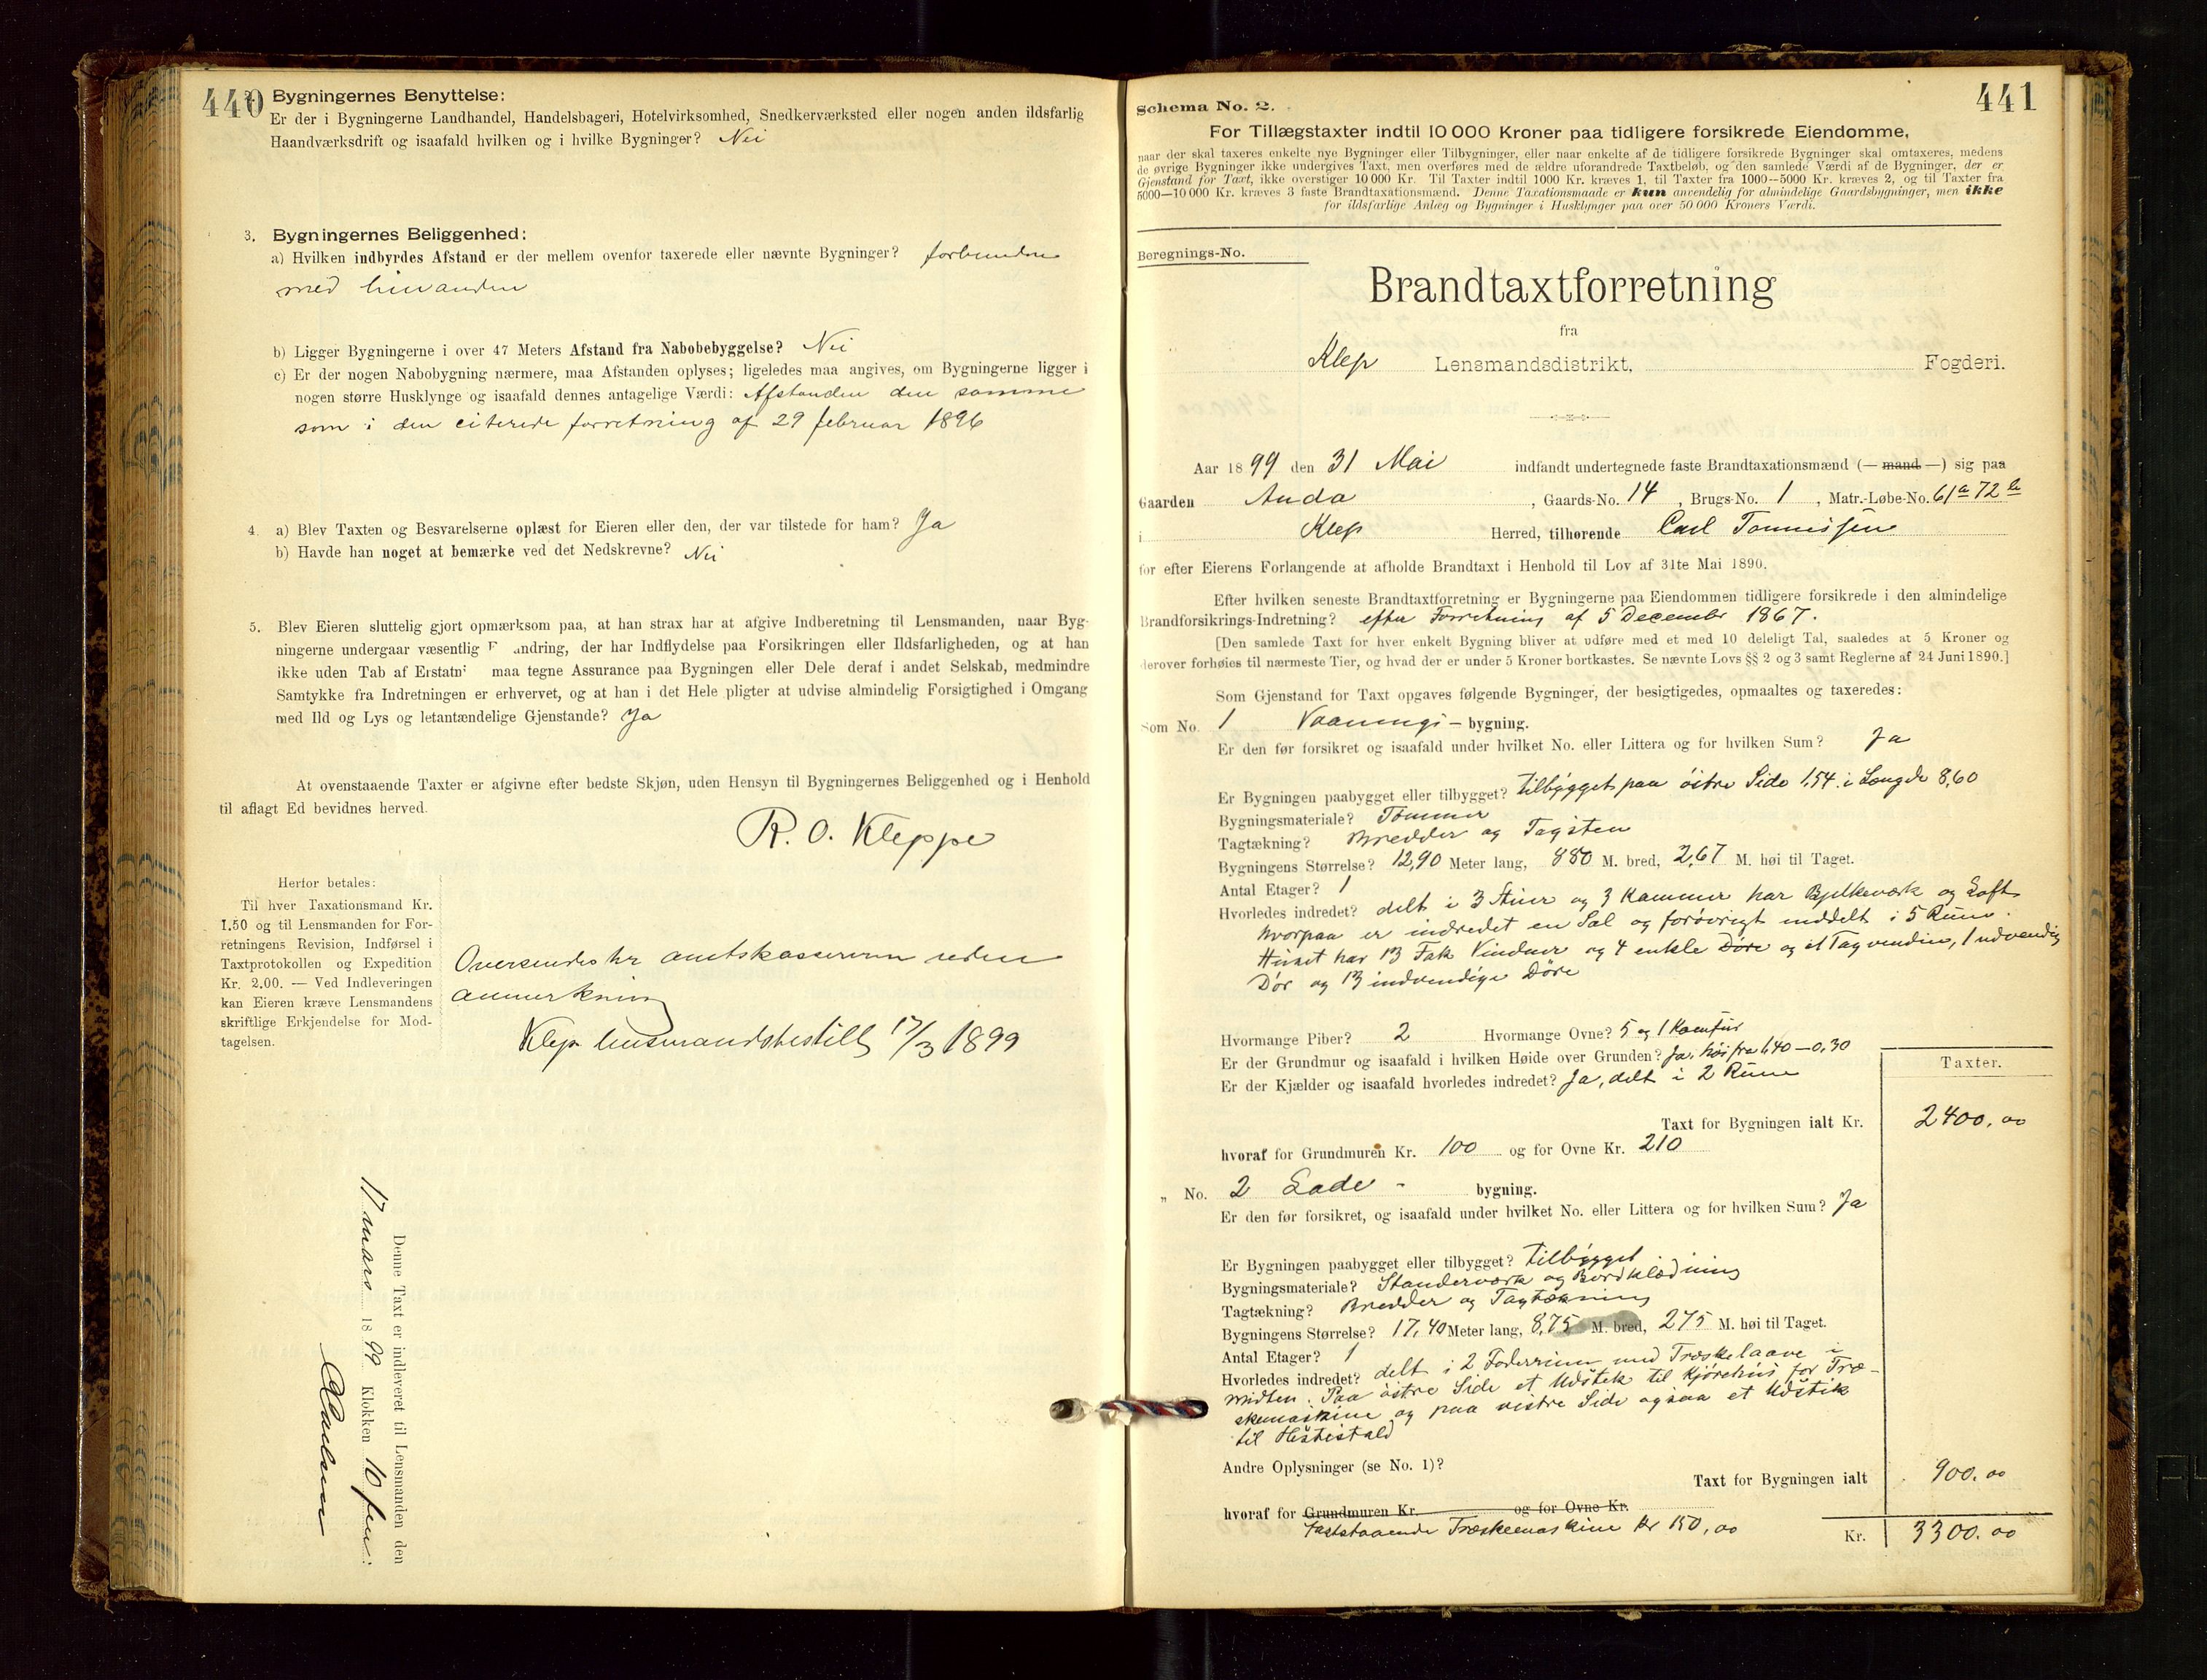 440
Bygningernes Benyttelse:
Er der i Bygningerne Landhandel, Handelsbageri, Hotelvirksomhed, Snedkerværksted eller nogen anden ildsfarlig
Haandværksdrift og isaafald hvilken og i hvilke Bygninger? Nei
3. Bygningernes Beliggenhed:
a) Hvilken indbyrdes Afstand er der mellem ovenfor taxerede eller nævnte Bygninger? forbundne
med hinanden
b) Ligger Bygningerne i over 47 Meters Afstand fra Nabobebyggelse? Nei
c) Er der nogen Nabobygning nærmere, maa Afstanden oplyses; ligeledes maa angives, om Bygningerne ligger i
nogen større Husklynge og isaafald dennes antagelige Værdi: Afstanden den samme
som i den citerede forretning af 29 februar 1896
4. a) Blev Taxten og Besvarelserne oplæst for Eieren eller den, der var tilstede for ham? Ja
b) Havde han noget at bemærke ved det Nedskrevne? Nei
5. Blev Eieren sluttelig gjort opmærksom paa, at han strax har at afgive Indberetning til Lensmanden, naar Byg-
ningerne undergaar væsentlig F andring, der har Indflydelse paa Forsikringen eller Ildsfarligheden, og at han
ikke uden Tab af Erstatni maa tegne Assurance paa Bygningen eller Dele deraf i andet Selskab, medmindre
Samtykke fra Indretningen er erhvervet, og at han i det Hele pligter at udvise almindelig Forsigtighed i Omgang
med Ild og Lys og letantændelige Gjenstande? Ja
At ovenstaaende Taxter er afgivne efter bedste Skjøn, uden Hensyn til Bygningernes Beliggenhed og i Henhold
til aflagt Ed bevidnes herved.
R. O. Kleppe
Herfor betales:
Til hver Taxationsmand Kr.
1.50 og til Lensmanden for For-
retningens Revision, Indførsel i
Taxtprotokollen og Expedition
Kr. 2,00. — Ved Indleveringen
kan Eieren kræve Lensmandens
skriftlige Erkjendelse for Mod-
tagelsen.
Oversendes hr amtskassereren uden
anmerkning
Klep lensmandsbestill 17/3 1899
Denne Taxt er indleveret til Lensmanden den
17 mars 1899 Klokken 10 fm:
441
Schema No. 2.
For Tillægstaxter indtil 10 000 Kroner paa tidligere forsikrede Eiendomme,
naar der skal taxeres enkelte nye Bygninger eller Tilbygninger, eller naar enkelte af de tidligere forsikrede Bygninger skal omtaxeres, medens
de øvrige Bygninger ikke undergives Taxt, men overføres med de ældre uforandrede Taxtbeløb, og den samlede Værdi af de Bygninger, der er
Gjenstand for Taxt, ikke overstiger 10 000 Kr. Til Taxter indtil 1000 Kr. kræves 1, til Taxter fra 1000—5000 Kr. kræves 2, og til Taxter fra
5000—10 000 Kr. kræves 3 faste Brandtaxationsmænd. Denne Taxationsmaade er kun anvendelig for almindelige Gaardsbygninger, men ikke
for ildsfarlige Anlæg og Bygninger i Husklynger paa over 50 000 Kroners Værdi.
Beregnings-No.
Brandtaxtforretning
fra
Klep Lensmandsdistrikt, Fogderi.
Aar 1899 den 31 Mai indfandt undertegnede faste Brandtaxationsmænd (— mand —) sig paa
Gaarden Anda, Gaards-No. 14, Brugs-No. 1, Matr.-Løbe-No. 61a 72b
i Klep Herred, tilhørende Carl Tonnessen
for efter Eierens Forlangende at afholde Brandtaxt i Henhold til Lov af 31te Mai 1890.
Efter hvilken seneste Brandtaxtforretning er Bygningerne paa Eiendommen tidligere forsikrede i den almindelige
Brandforsikrings-Indretning? efter Forretning af 5 December 1867.
[Den samlede Taxt for hver enkelt Bygning bliver at udføre med et med 10 deleligt Tal, saaledes at 5 Kroner og
derover forhøies til nærmeste Tier, og hvad der er under 5 Kroner bortkastes. Se nævnte Lovs §§ 2 og 3 samt Reglerne af 24 Juni 1890.]
Som Gjenstand for Taxt opgaves følgende Bygninger, der besigtigedes, opmaaltes og taxeredes:
Som No. 1 Vaanings-bygning.
Er den før forsikret og isaafald under hvilket No. eller Littera og for hvilken Sum? Ja
Er Bygningen paabygget eller tilbygget? tilbygget paa östre Side 1,54 i Længde 8,60
Bygningsmateriale? Tömmer
Tagtækning? Bredder og Tagsten
Bygningens Størrelse? 12,90 Meter lang, 880 M. bred, 2,67 M. høi til Taget.
Antal Etager? 1
Hvorledes indredet? delt i 3 Stuer og 3 Kammer har Bjelkeværk og Loft
hvorpaa er indredet en Sal og forövrigt inddelt i 5 Rum.
Huset har 13 Fak Vinduer og 4 enkle Döre og et Tagvendue, 1 udvendig
Dör og 13 indvendige Döre
Hvormange Piber? 2 Hvormange Ovne? 5 og 1 Komfur
Er der Grundmur og isaafald i hvilken Høide over Grunden? Ja, höi fra 1,40—0,30
Er der Kjælder og isaafald hvorledes indredet? Ja, delt i 2 Rum
Taxter.
Taxt for Bygningen ialt Kr. 2400,00
hvoraf for Grundmuren Kr. 100 og for Ovne Kr. 210
„ No. 2 Lade - bygning.
Er den før forsikret, og isaafald under hvilket No. eller Littera og for hvilken Sum? Ja
Er Bygningen paabygget eller tilbygget? tilbygget
Bygningsmateriale? Standerværk og Bordklædning
Tagtækning? Bredder og Tagtækning
Bygningens Størrelse? 17,40 Meter lang, 8,75 M. bred, 275 M. høi til Taget.
Antal Etager? 1
Hvorledes indredet? delt i 2 Foderrum med Træskelaave i
midten. Paa östre Side et Udstik til Kjörehus for Træ-
skemaskine og paa vestre Side ogsaa et Udstik
til Hestestald
Andre Oplysninger (se No. 1)?
Taxt for Bygningen ialt 900,00
hvoraf for Grundmuren Kr. og for Ovne Kr.
faststaaende Træskemaskine Kr 150,00
Kr. 3300,00